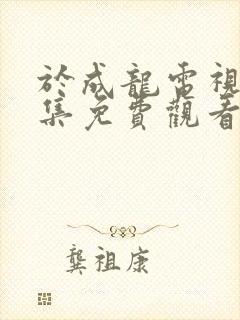 於成龍電視
集免費觀看
龔祖康